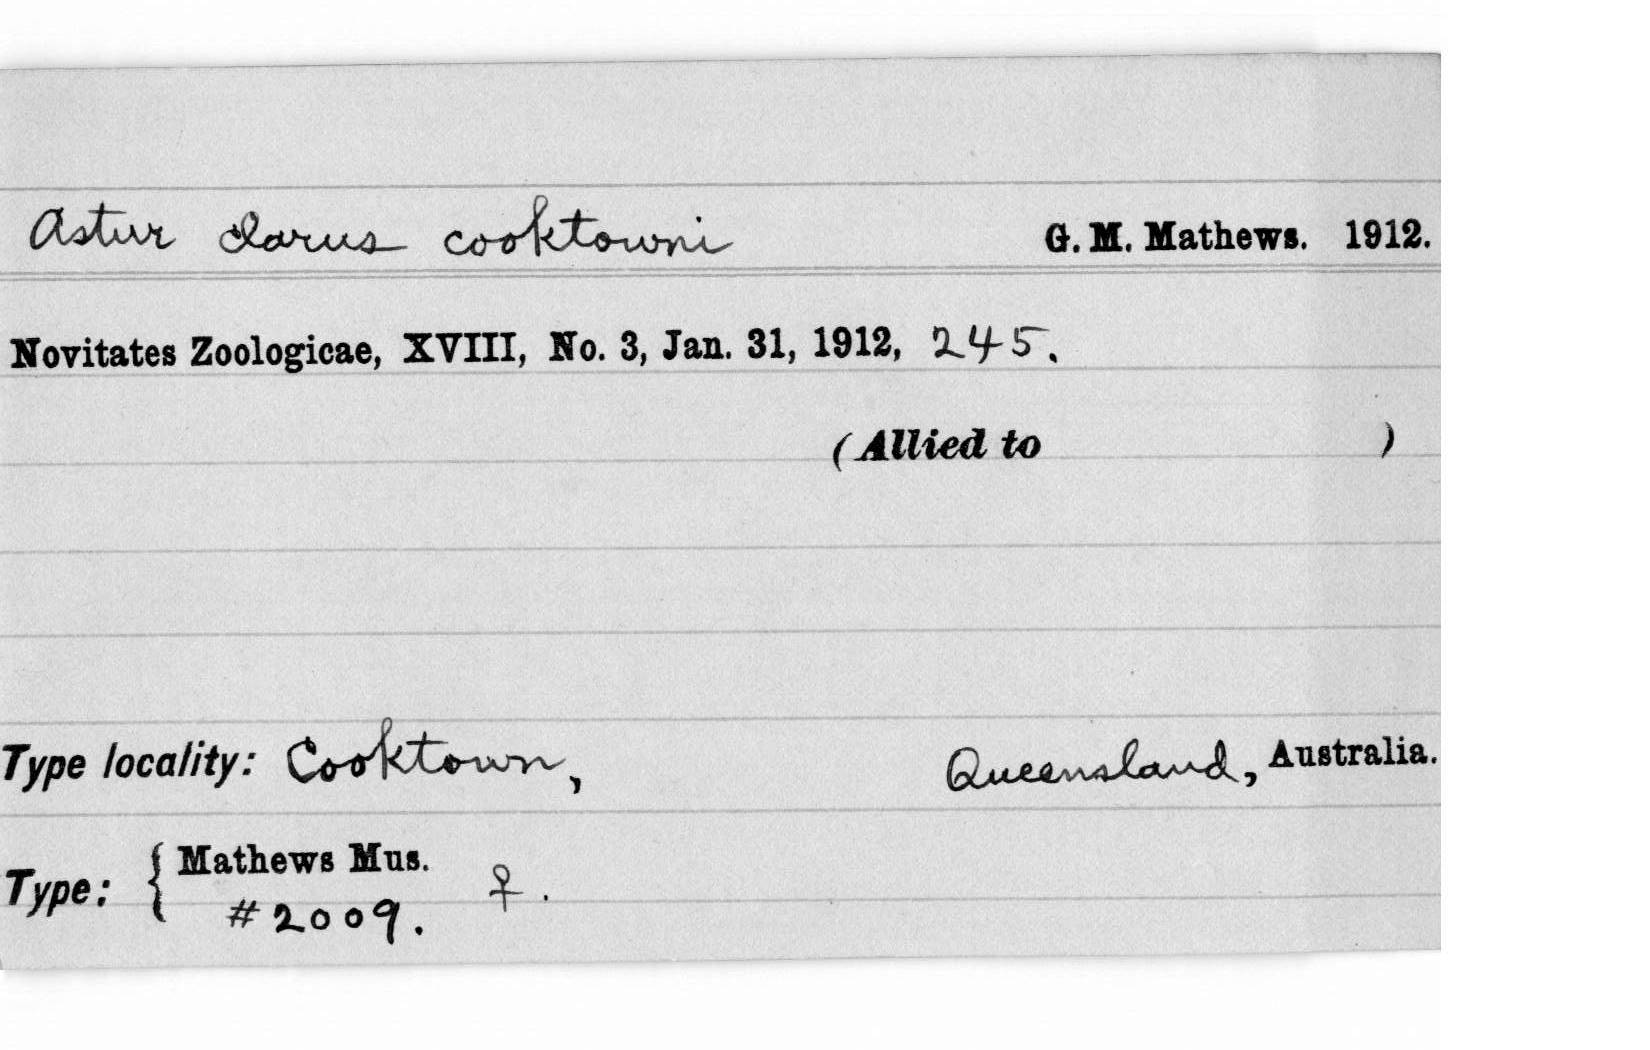 Astur clarus cooktowni G. M. Mathews. 1912.
Novitates Zoologicae, XVIII, No. 3, Jan. 31, 1912, 245.
(Allied to )
Type locality: Cooktown, Queensland, Australia.
Type: { Mathews Mus. ♀.
#2009.